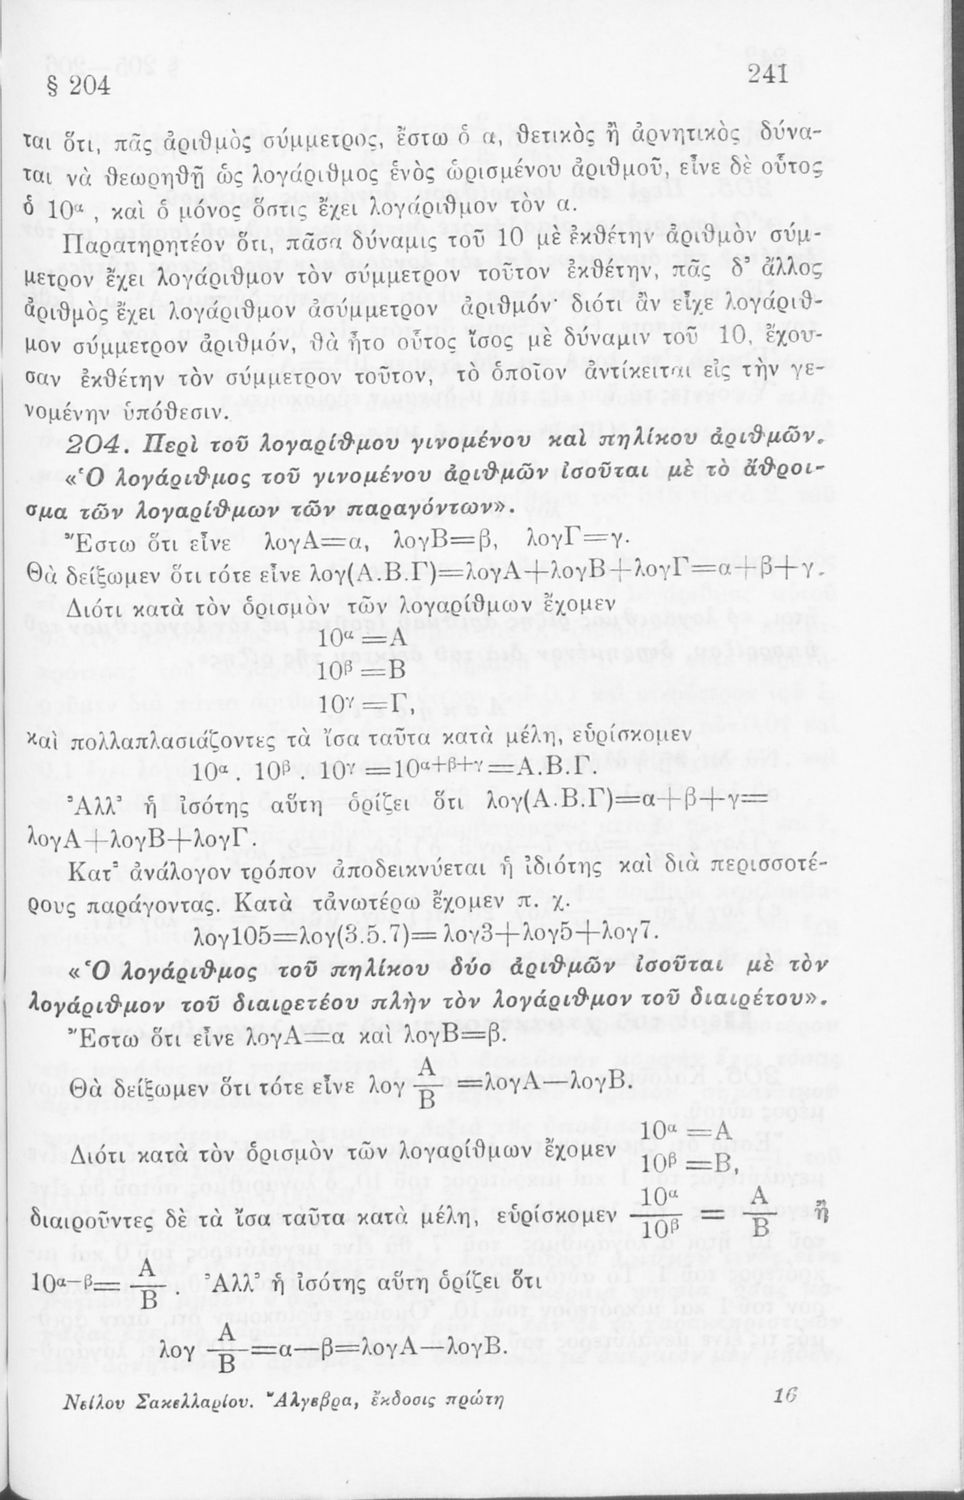 § 204
241
ται ὅτι, πᾶς ἀριθμὸς σύμμετρος, ἔστω ὁ α, θετικὸς ἢ ἀρνητικὸς δύνα-
ται νὰ θεωρηθῇ ὡς λογάριθμος ἑνὸς ὡρισμένου ἀριθμοῦ, εἶνε δὲ οὗτος
ὁ 10ᵅ , καὶ ὁ μόνος ὅστις ἔχει λογάριθμον τὸν α.
Παρατηρητέον ὅτι, πᾶσα δύναμις τοῦ 10 μὲ ἐκθέτην ἀριθμὸν σύμ-
μετρον ἔχει λογάριθμον τὸν σύμμετρον τοῦτον ἐκθέτην, πᾶς δ᾽ ἄλλος
ἀριθμὸς ἔχει λογάριθμον ἀσύμμετρον ἀριθμόν· διότι ἂν εἶχε λογάριθ-
μον σύμμετρον ἀριθμόν, θὰ ἦτο οὗτος ἴσος μὲ δύναμιν τοῦ 10, ἔχου-
σαν ἐκθέτην τὸν σύμμετρον τοῦτον, τὸ ὁποῖον ἀντίκειται εἰς τὴν γε-
νομένην ὑπόθεσιν.
204. Περὶ τοῦ λογαρίθμου γινομένου καὶ πηλίκου ἀριθμῶν.
«Ὁ λογάριθμος τοῦ γινομένου ἀριθμῶν ἰσοῦται μὲ τὸ ἄθροι-
σμα τῶν λογαρίθμων τῶν παραγόντων».
Ἔστω ὅτι εἶνε λογΑ=α, λογΒ=β, λογΓ=γ.
Θὰ δείξωμεν ὅτι τότε εἶνε λογ(Α.Β.Γ)=λογΑ+λογΒ+λογΓ=α+β+γ.
Διότι κατὰ τὸν ὁρισμὸν τῶν λογαρίθμων ἔχομεν
10ᵅ =Α
10ᵝ =Β
10ᵞ =Γ,
καὶ πολλαπλασιάζοντες τὰ ἴσα ταῦτα κατὰ μέλη, εὑρίσκομεν
10ᵅ . 10ᵝ . 10ᵞ =10ᵅ⁺ᵝ⁺ᵞ=Α.Β.Γ.
Ἀλλ᾽ ἡ ἰσότης αὕτη ὁρίζει ὅτι λογ(Α.Β.Γ)=α+β+γ=
λογΑ+λογΒ+λογΓ.
Κατ᾽ ἀνάλογον τρόπον ἀποδεικνύεται ἡ ἰδιότης καὶ διὰ περισσοτέ-
ρους παράγοντας. Κατὰ τἀνωτέρω ἔχομεν π. χ.
λογ105=λογ(3.5.7)= λογ3+λογ5+λογ7.
«Ὁ λογάριθμος τοῦ πηλίκου δύο ἀριθμῶν ἰσοῦται μὲ τὸν
λογάριθμον τοῦ διαιρετέου πλὴν τὸν λογάριθμον τοῦ διαιρέτου».
Ἔστω ὅτι εἶνε λογΑ=α καὶ λογΒ=β.
Θὰ δείξωμεν ὅτι τότε εἶνε λογ Α/Β =λογΑ—λογΒ.
Διότι κατὰ τὸν ὁρισμὸν τῶν λογαρίθμων ἔχομεν 10ᵅ =Α
10ᵝ =Β,
διαιροῦντες δὲ τὰ ἴσα ταῦτα κατὰ μέλη, εὑρίσκομεν 10ᵅ/10ᵝ = Α/Β ἢ
10ᵅ⁻ᵝ= Α/Β . Ἀλλ᾽ ἡ ἰσότης αὕτη ὁρίζει ὅτι
λογ Α/Β =α—β=λογΑ—λογΒ.
Νείλου Σακελλαρίου. Ἄλγεβρα, ἔκδοσις πρώτη
16